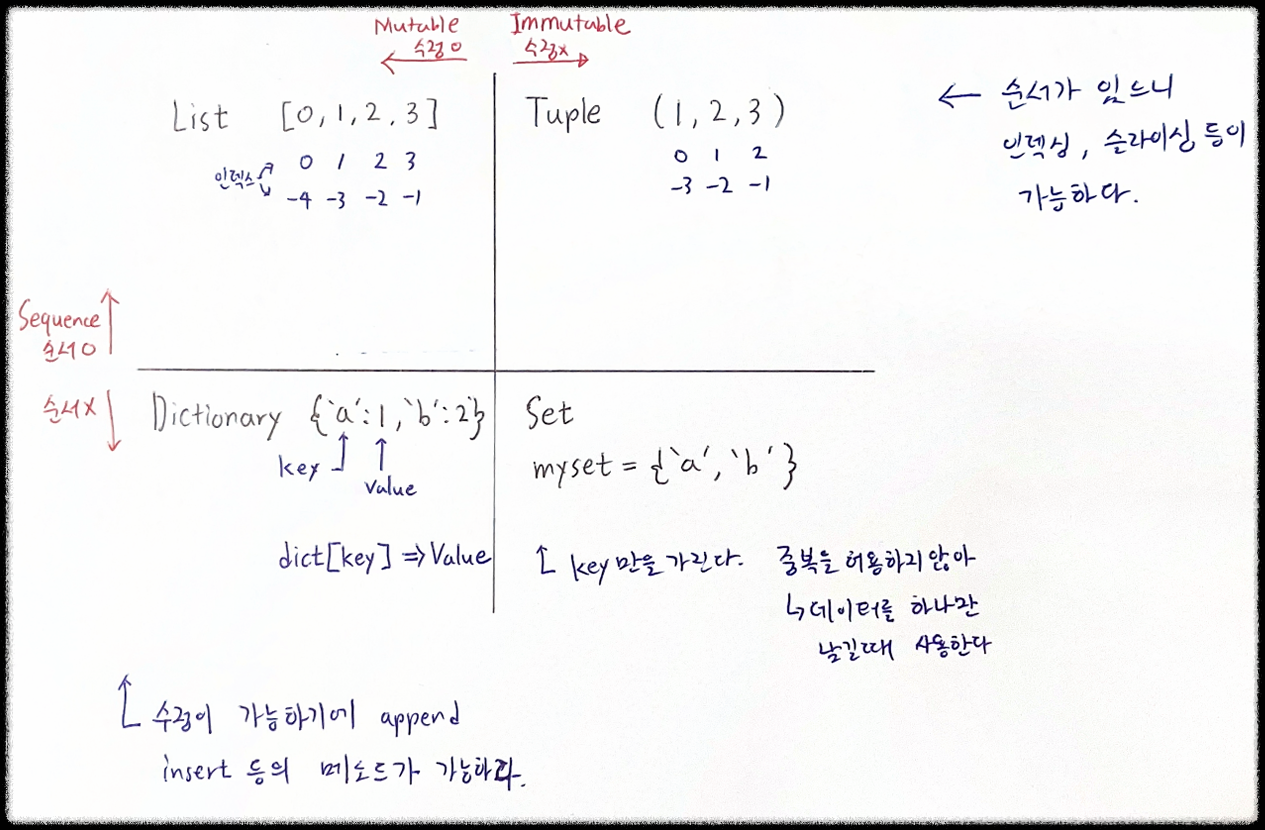 Mutable
수정 o
Immutable
수정x
List [0, 1, 2, 3]
인덱스
0 1 2 3
-4 -3 -2 -1
Tuple (1, 2, 3)
0 1 2
-3 -2 -1
← 순서가 있으니
인덱싱, 슬라이싱 등이
가능하다.
Sequence
순서 O
순서 X
Dictionary {'a':1, 'b':2}
key
value
dict[key] => Value
Set
myset = {'a', 'b'}
key만을 가진다. 중복을 허용하지 않아
↳ 데이터를 하나만
남길때 사용한다
수정이 가능하기에 append
insert 등의 메소드가 가능하다.